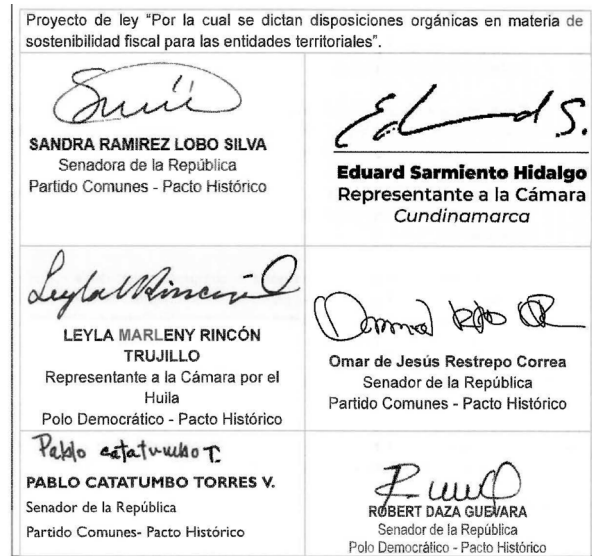 Proyecto de ley “Por la cual se dictan disposiciones orgánicas en materia de
sostenibilidad fiscal para las entidades territoriales”.
SANDRA RAMIREZ LOBO SILVA
Senadora de la República
Partido Comunes - Pacto Histórico
Eduard S.
Eduard Sarmiento Hidalgo
Representante a la Cámara
Cundinamarca
Leyla Rincón
LEYLA MARLENY RINCÓN
TRUJILLO
Representante a la Cámara por el
Huila
Polo Democrático - Pacto Histórico
Omar de Jesús Restrepo Correa
Senador de la República
Partido Comunes - Pacto Histórico
Pablo catatumbo T.
PABLO CATATUMBO TORRES V.
Senador de la República
Partido Comunes- Pacto Histórico
ROBERT DAZA GUEVARA
Senador de la República
Polo Democrático - Pacto Histórico